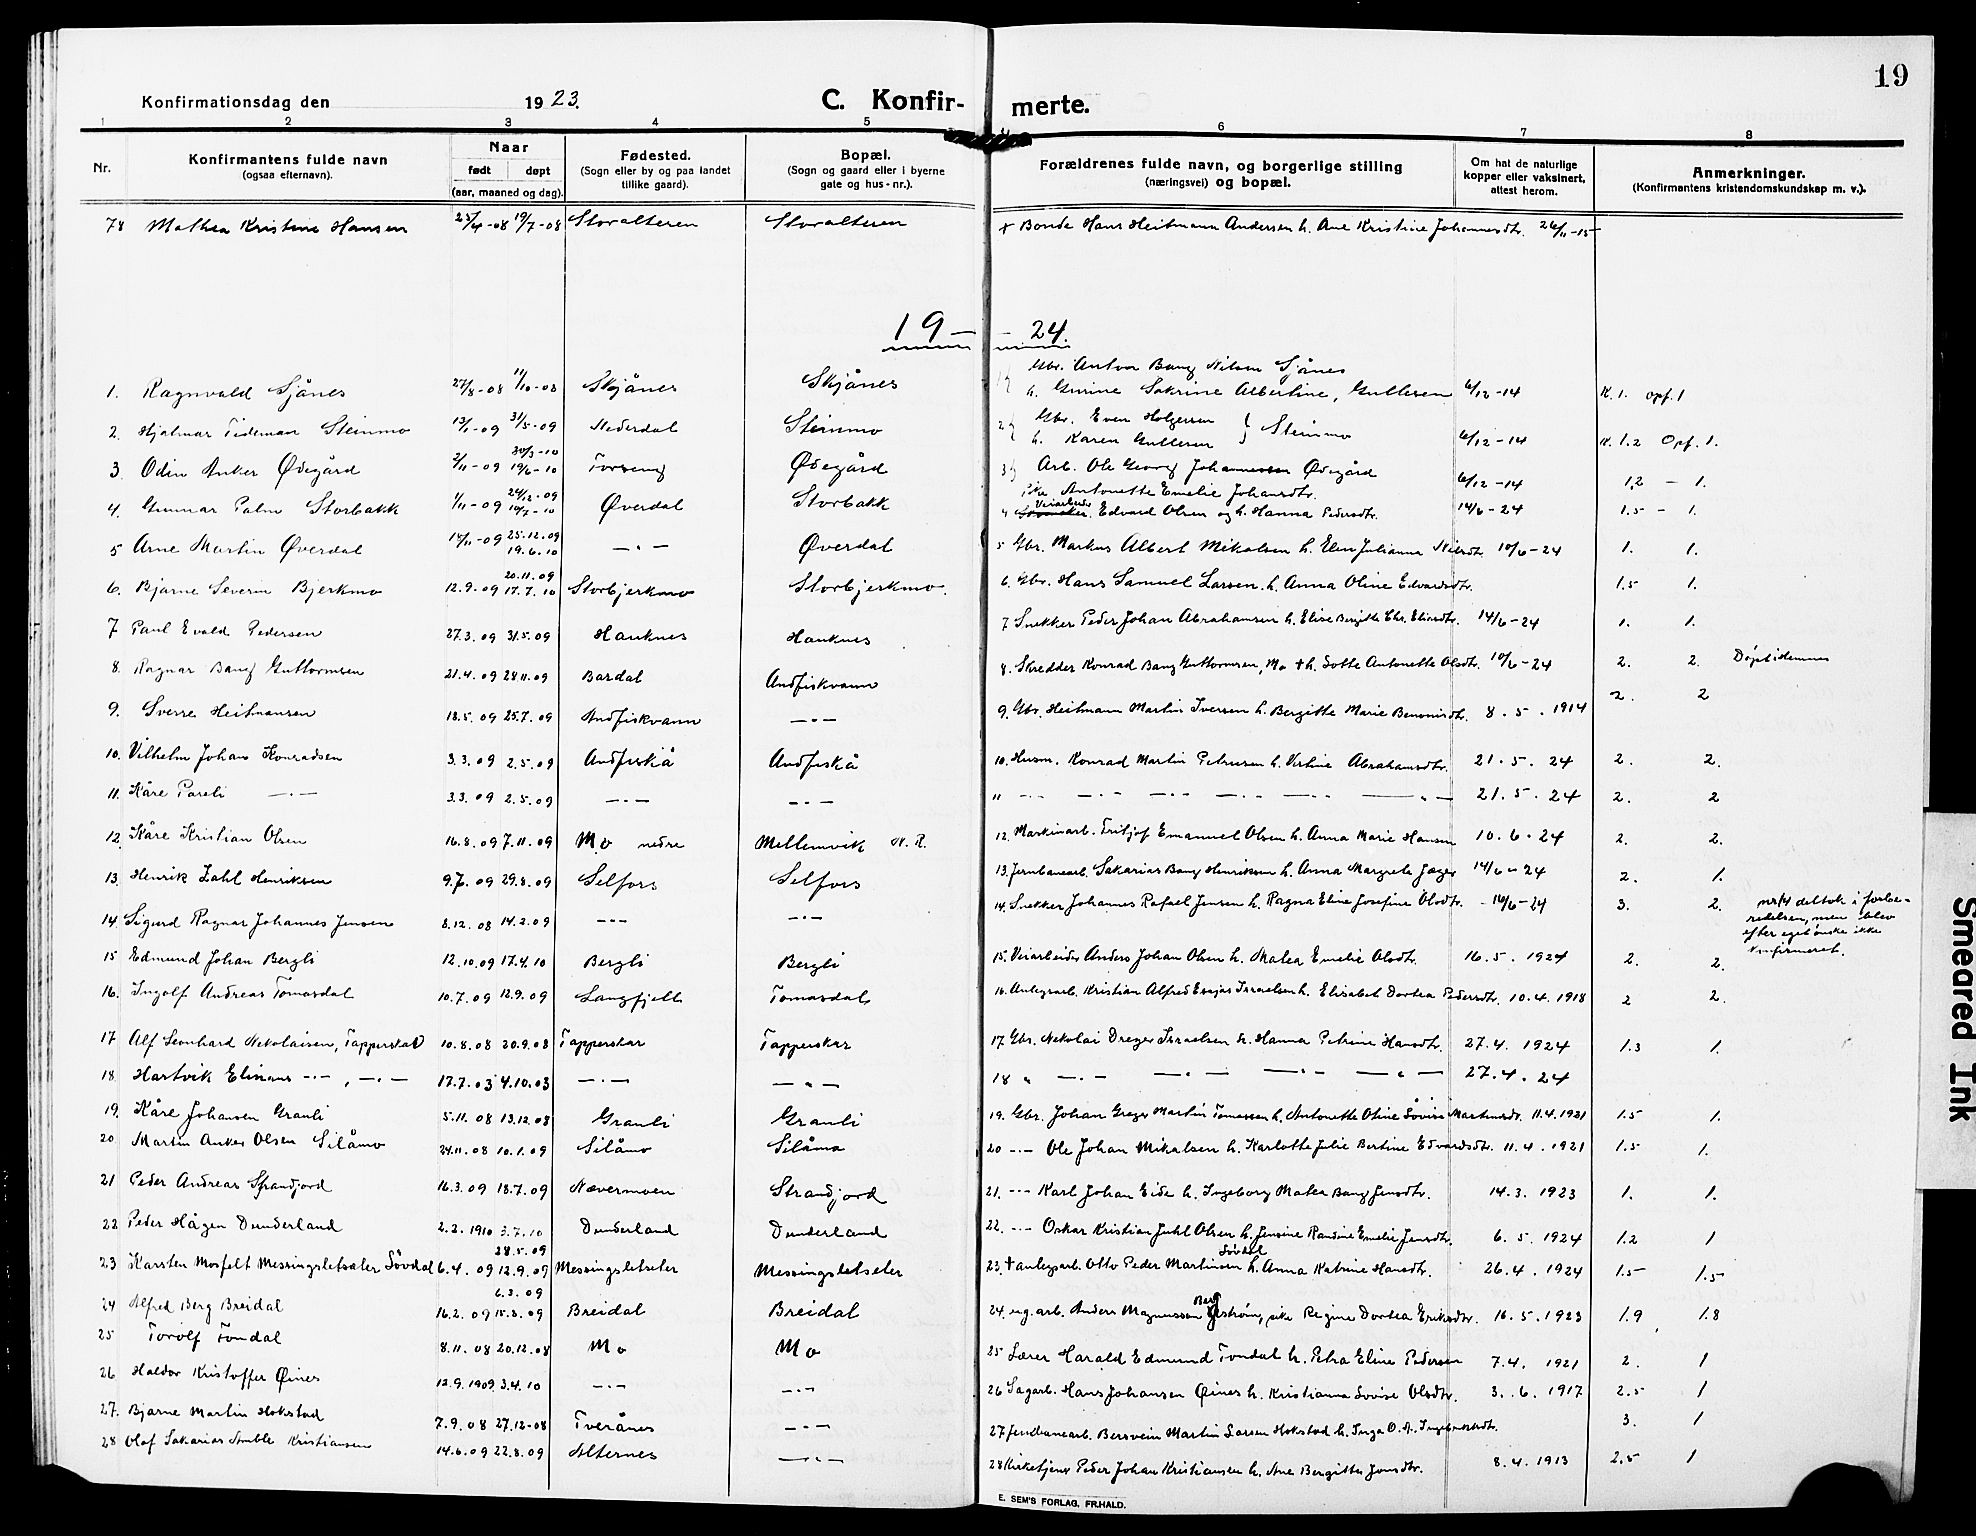 19
Konfirmationsdag den 1923.
C. Konfir- merte.
1 2 3 4 5 6 7 8
Nr.
Konfirmantens fulde navn
(ogsaa efternavn).
Naar
født døpt
(aar, maaned og dag).
Fødested.
(Sogn eller by og paa landet
tillike gaard).
Bopæl.
(Sogn og gaard eller i byerne
gate og hus-nr.).
Forældrenes fulde navn, og borgerlige stilling
(næringsvei) og bopæl.
Om hat de naturlige
kopper eller vaksinert,
attest herom.
Anmerkninger.
(Konfirmantens kristendomskundskap m. v.).
78 Mathea Kristine Hansen 25/4-08 19/7-08 Storalteren Storalteren + Bonde Hans Heitmann Andersen h. Ane Kristine Johannesdtr. 26/11-15
19- - 24.
1. Ragnvald Sjånes 27/8-08 11/10-08 Skjånes Skjånes Gbr. Anton Bang Nilsen Sjånes
h. Gunine Sakrine Albertine, Gullesen 6/12-14 K. 1. opf. 1
2. Hjalmar Tideman Steinmo 13/1-09 31/5-09 Nederdal Steinmo 2 Gbr. Even Holgersen
h. Karen Gullesen } Steinmo 6/12-14 K. 1.2 Opf. 1.
30/3-10
3. Odin Anker Ødegård 2/11-09 19/6-10 Torseng Ødegård 3 Arb. Ole Georg Johannessen Ødegård 6/12-14 1,2 - 1.
Pike Antonette Emelie Johansdtr.
24/12-09
4. Gunnar Palm Storbakk 1/11-09 10/7-10 Øverdal Storbakk 4 Veiarbeider Edvard Olsen og h. Hanna Pedersdtr. 14/6-24 1.5 - 1.
25.12.09
5 Arne Martin Øverdal 14/11-09 19.6.10 -"- Øverdal 5 Gbr. Markus Albert Mikalsen h. Elen Julianna Nilsdtr. 10/6-24 1. 1.
20.11.09
6. Bjarne Severin Bjerkmo 12.9.09 17.7.10 Storbjerkmo Storbjerkmo. 6. Gbr. Hans Samuel Larsen h. Anna Oline Edvardsdtr. 1.5 1.
7 Paul Evald Pedersen 27.3.09 31.5.09 Hauknes Hauknes 7 Snekker Peder Johan Abrahamsen h. Elise Bergitte Chr. Eliasdtr. 14/6-24 1. 1.
8. Ragnar Bang Guttormsen 21.4.09 28.11.09 Bardal Andfiskvann 8. Skredder Konrad Bang Guttormsen, Mo + h. Lotte Antonette Olsdtr. 10/6-24 2. 2. Døpt hjemme
9. Sverre Heitmansen 18.5.09 25.7.09 Andfiskvann -"- 9. Gbr. Heitmann Martin Iversen h. Bergitte Marie Benonisdtr. 8.5.1914 2. 2
10. Vilhelm Johan Konradsen 3.3.09 2.5.09 Andfiskå Andfiskå 10. Husm. Konrad Martin Petersen h. Virline Abrahamsdtr. 21.5.24 2. 2.
11. Kåre Pareli -"- 3.3.09 2.5.09 -"- -"- " -"- -"- -"- -"- -"- 21.5.24 2. 2
12. Kåre Kristian Olsen 16.8.09 7.11.09 Mo nedre Mellemvik N.R. 12. Maskinarb. Fritjof Emanuel Olsen h. Anna Marie Hansen 10.6.24 2. 2.
13. Henrik Zahl Henriksen 9.7.09 29.8.09 Selfors Selfors 13. Jernbanearb. Sakarias Bang Henriksen h. Anna Margrete Jæger 14/6-24 2. 1.
14. Sigurd Ragnar Johannes Jensen 8.12.08 14.2.09 -"- -"- 14. Snekker Johannes Rafael Jensen h. Ragna Eline Josefine Olsdtr. 14/6-24 3. 2. nr. 14 deltok i forbe-
redelsen, men blev
efter eget ønske ikke
konfirmeret.
15 Edmund Johan Bergli 12.10.09 17.4.10 Bergli Bergli 15. Veiarbeider Anders Johan Olsen h. Malea Emelie Olsdtr. 16.5.1924 2. 2.
16. Ingolf Andreas Tomasdal 10.7.09 12.9.09 Langfjell Tomasdal 16. Anlegsarb. Kristian Alfred Esajas Israelsen h. Elisabet Dortea Pedersdtr. 10.4.1918 2 2.
17 Alf Leonhard Nikolaisen, Tapperskar 10.8.08 20.9.08 Tapperskar Tapperskar 17. Gbr. Nikolai Dreyer Israelsen h. Hanna Petrine Hansdtr. 27.4.1924 1.3 1.
18. Hartvik Elinaus -"-, -"- 17.7.03 4.10.03 -"- -"- 18 " -"- -"- -"- -"- 27.4.24
19. Kåre Johansen Granli 5.11.08 13.12.08 Granli Granli 19. Gbr. Johan Greger Martin Tomassen h. Antonette Oline Lovise Martinsdtr. 11.4.1921 1.5 1.
20 Martin Anker Olsen Silåmo 24.11.08 10.1.09 Silåmo Silåmo 20 -"- Ole Johan Mikalsen h. Karlotte Julie Bertine Edvardsdtr. 11.4.1921 1.5 1.
21 Peder Andreas Strandjord 16.3.09 18.7.09 Nævermoen Strandjord 21. -"- Karl Johan Eide h. Ingeborg Malea Bang Jensdtr. 14.3.1923 1. 1.
22 Peder Hågen Dunderland 2.2.1910 3.7.10 Dunderland Dunderland 22. -"- Oskar Kristian Juhl Olsen h. Jensine Randine Emelie Jensdtr. 6.5.1924 1.2 1
28.5.09
23 Karsten Mosfelt Messingsletseter Sövdal 6.4.09 12.9.09 Messingsletseter Messingsletseter 23. + anlegsarb. Otto Peder Martinsen Sövdal h. Anna Katrine Hansdtr. 26.4.1924 1.5 1.5
6.3.09
24 Alfred Berg Breidal 16.2.09 15.8.09 Breidal Breidal 24. ug. arb. Anders Magnussen Bergstrøm, pike Regine Dortea Eriksdtr. 16.5.1923 1.9 1.8
25 Torolf Tondal 8.11.08 20.12.08 Mo Mo 25 Lærer Harald Edmund Tondal h. Petra Eline Pedersen 7.4.1921 2. 1
26 Haldor Kristoffer Øines 12.9.1909 3.4.10 -"- -"- 26 Sagarb. Hans Johansen Øines h. Kristianna Lovise Olsdtr. 3.6.1917 2.5 1
27. Bjarne Martin Hokstad 7.9.08 27.12-08 Tverånes -"- 27 Jernbanearb. Bersvein Martin Larsen Hokstad h. Inga O. A. Ingebriktsdtr. 3. 1
28 Olaf Sakarias Amble Kristiansen 14.6.09 22.8.09 Alternes -"- 28 Kirketjener Peder Johan Kristiansen h. Ane Bergitte Jonsdtr. 8.4.1913 2.5 1
E. SEM'S FORLAG, FR.HALD.
Smeared Ink